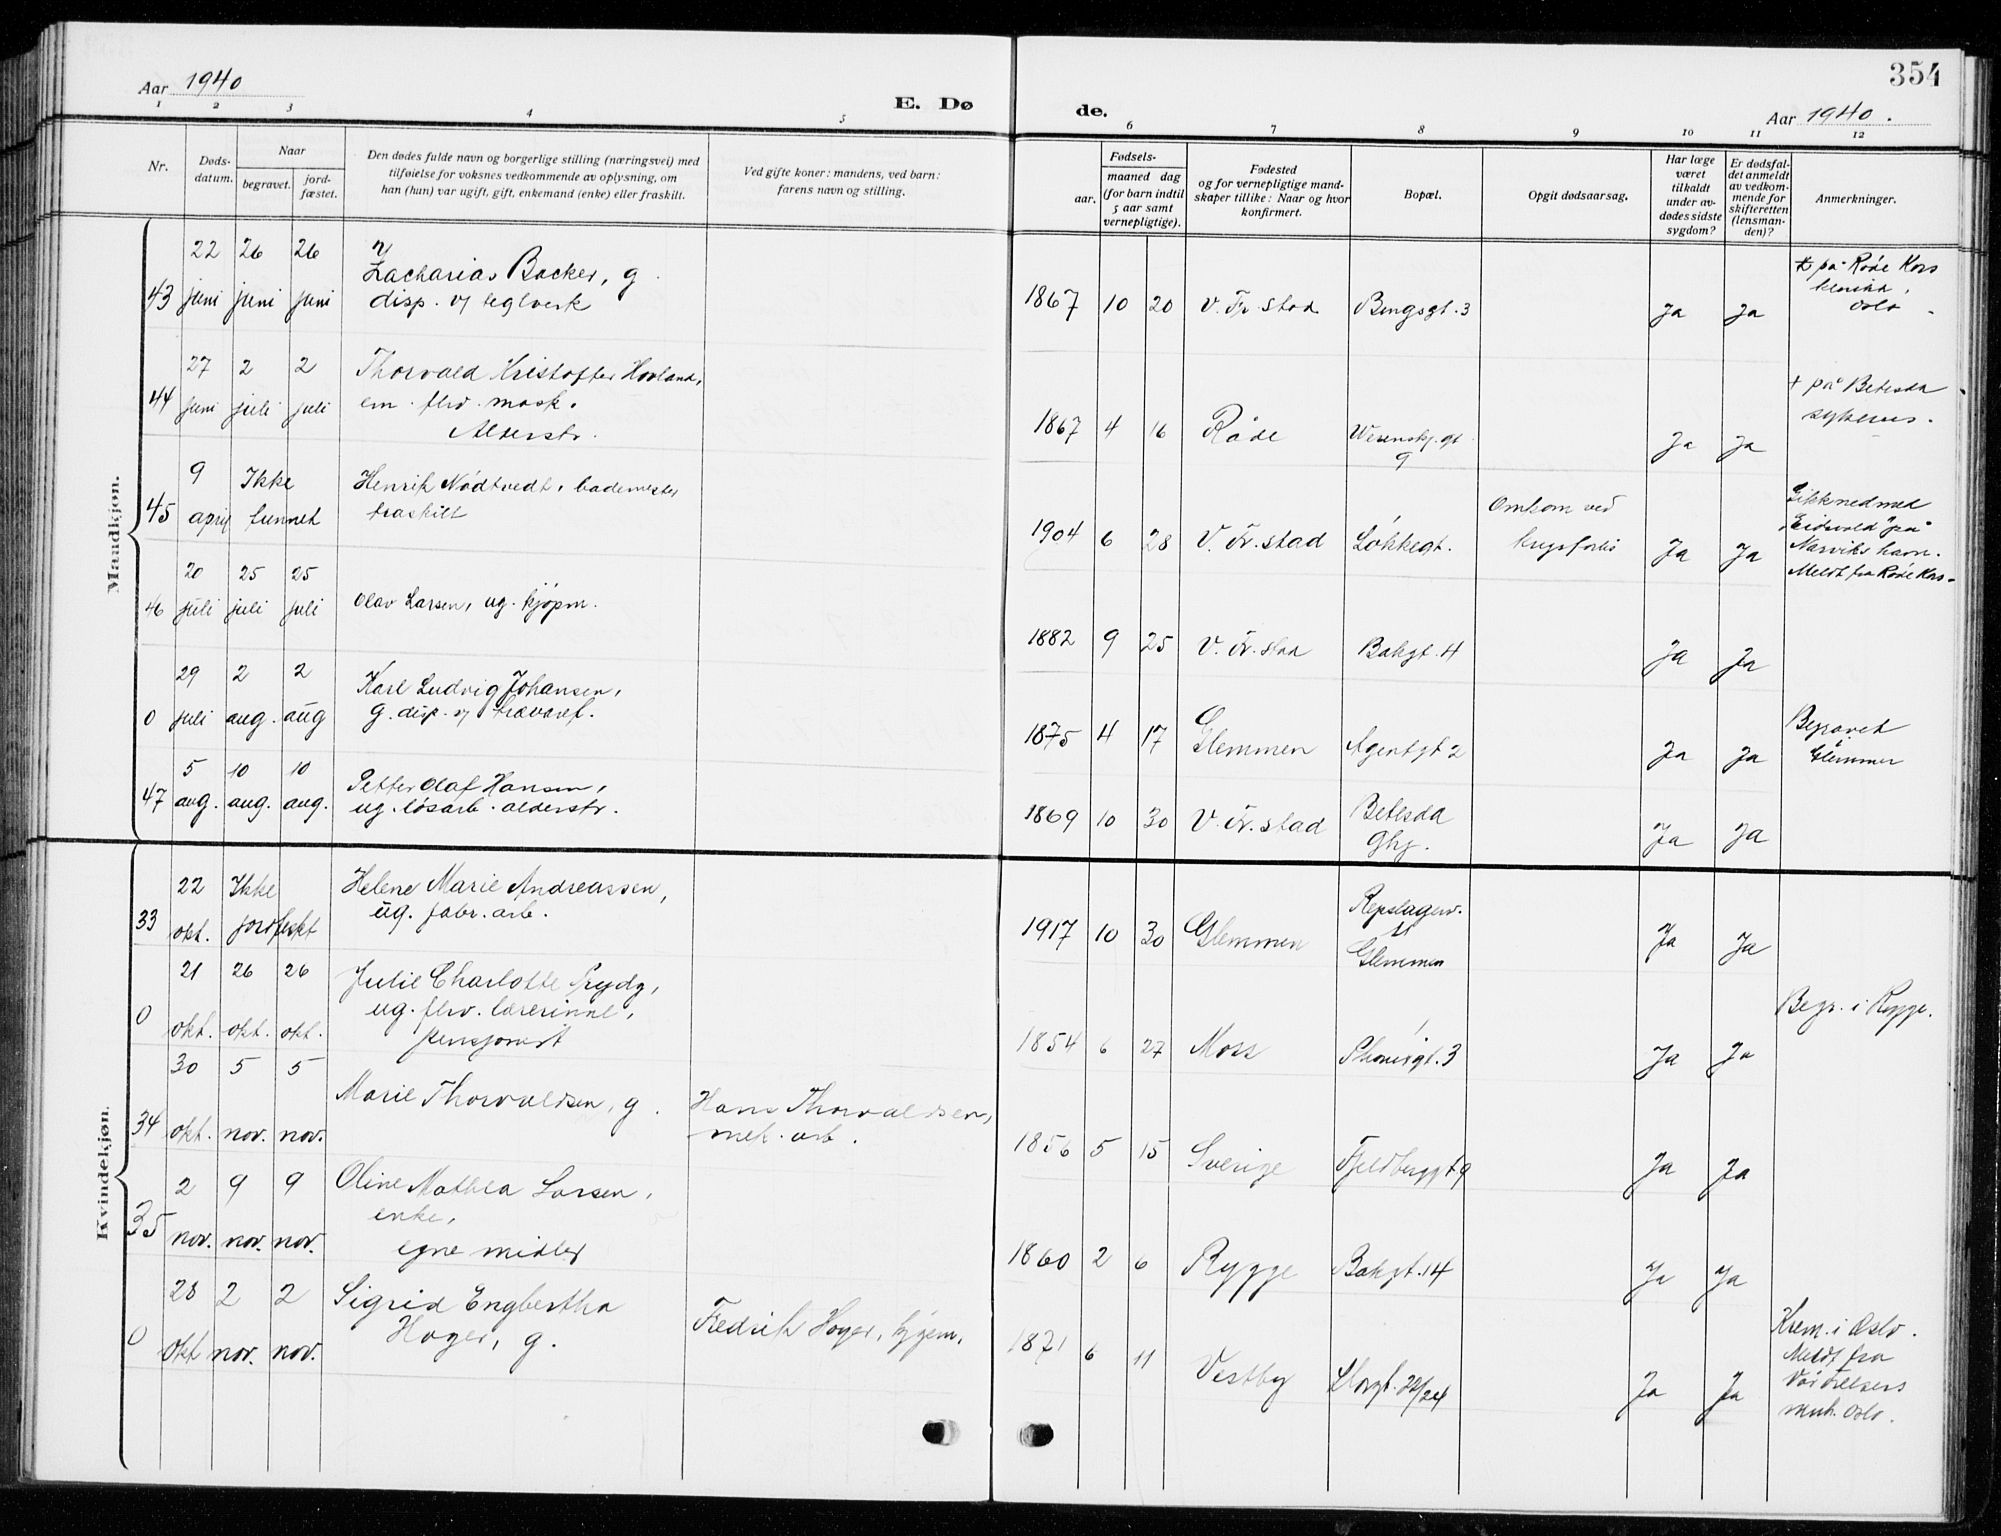 Aar 1940
E. Dø
1 2 3 4 5
Nr.
Døds-
datum.
Naar
begravet.
jord-
fæstet.
Den dødes fulde navn og borgerlige stilling (næringsvei) med
tilføielse for voksnes vedkommende av oplysning, om
han (hun) var ugift, gift, enkemand (enke) eller fraskilt.
Ved gifte koner: mandens, ved barn:
farens navn og stilling.
Maandkjøn.
22 26 26
43 juni juni juni
Zacharias Backer, g.
disp. v/ teglverk
27 2 2
44 juni juli juli
Thorvald Kristoffer Hovland,
em. fhv. mask.
Alderstr.
9 Ikke
45 april funnet
Henrik Nødtvedt, bademester
fraskilt
20 25 25
46 juli juli juli
Olav Larsen, ug. kjøpm.
29 2 2
0 juli aug. aug
Karl Ludvig Johansen,
g. disp. v/ trævaref.
5 10 10
47 aug. aug. aug.
Petter Olaf Hansen,
ug. løsarb. alderstr.
Kvindekjøn.
22 Ikke
33 okt. jordfestet
Helene Marie Andreassen,
ug. fabr. arb.
21 26 26
0 okt. okt. okt.
Julie Charlotte Prydz,
ug. fhv. lærerinne,
pensjonist
30 5 5
34 okt. nov. nov.
Marie Thorvaldsen, g.
Hans Thorvaldsen,
mek. arb.
2 9 9
35 nov. nov. nov.
Oline Mathea Larsen,
enke,
egne midler
28 2 2
0 okt nov. nov.
Sigrid Engbertha
Høyer, g.
Fredrik Høyer, kjøpm.
354
de.
Aar 1940.
6 7 8 9 10 11 12
Fødsels-
aar. maaned dag
(for barn indtil
5 aar samt
vernepligtige).
Fødested
og for vernepligtige mand-
skaper tillike: Naar og hvor
konfirmert.
Bopæl.
Opgit dødsaarsag.
Har læge
været
tilkaldt
under av-
dødes sidste
sygdom?
Er dødsfal-
det anmeldt
av vedkom-
mende for
skifteretten
(lensman-
den)?
Anmerkninger.
1867 10 20 V. Fr.stad Bengsgt. 3 Ja Ja
† på Røde Kors
klinikk,
Oslo
1867 4 16 Råde Wesenskj. gt
9
Ja Ja
† på Betesda
sykehus.
1904 6 28 V. Fr.stad Løkkegt.
Omkom ved
krigsforlis
Ja Ja
Gikk ned med
"Eidsvold" på
Narviks havn.
Meldt fra Røde Kors.
1882 9 25 V. Fr.stad Bakgt. 4 Ja Ja
1875 4 17 Glemmen Agentgt 2 Ja Ja
Begravet
i
Glemmen
1869 10 30 V. Fr.stad Betesda
Ghj.
Ja Ja
1917 10 30 Glemmen
Repslagerv.
Glemmen
Ja Ja
1854 6 27 Moss Phønixgt. 3 Ja Ja
Begr. i Rygge.
1856 5 15 Sverige Fjeldberggt 9 Ja Ja
1860 2 6 Rygge Bakgt. 14 Ja Ja
1871 6 11 Vestby Storgt. 22/24 Ja Ja
Krem. i Oslo.
Meldt fra
Vår Frelsers
menh. Oslo.